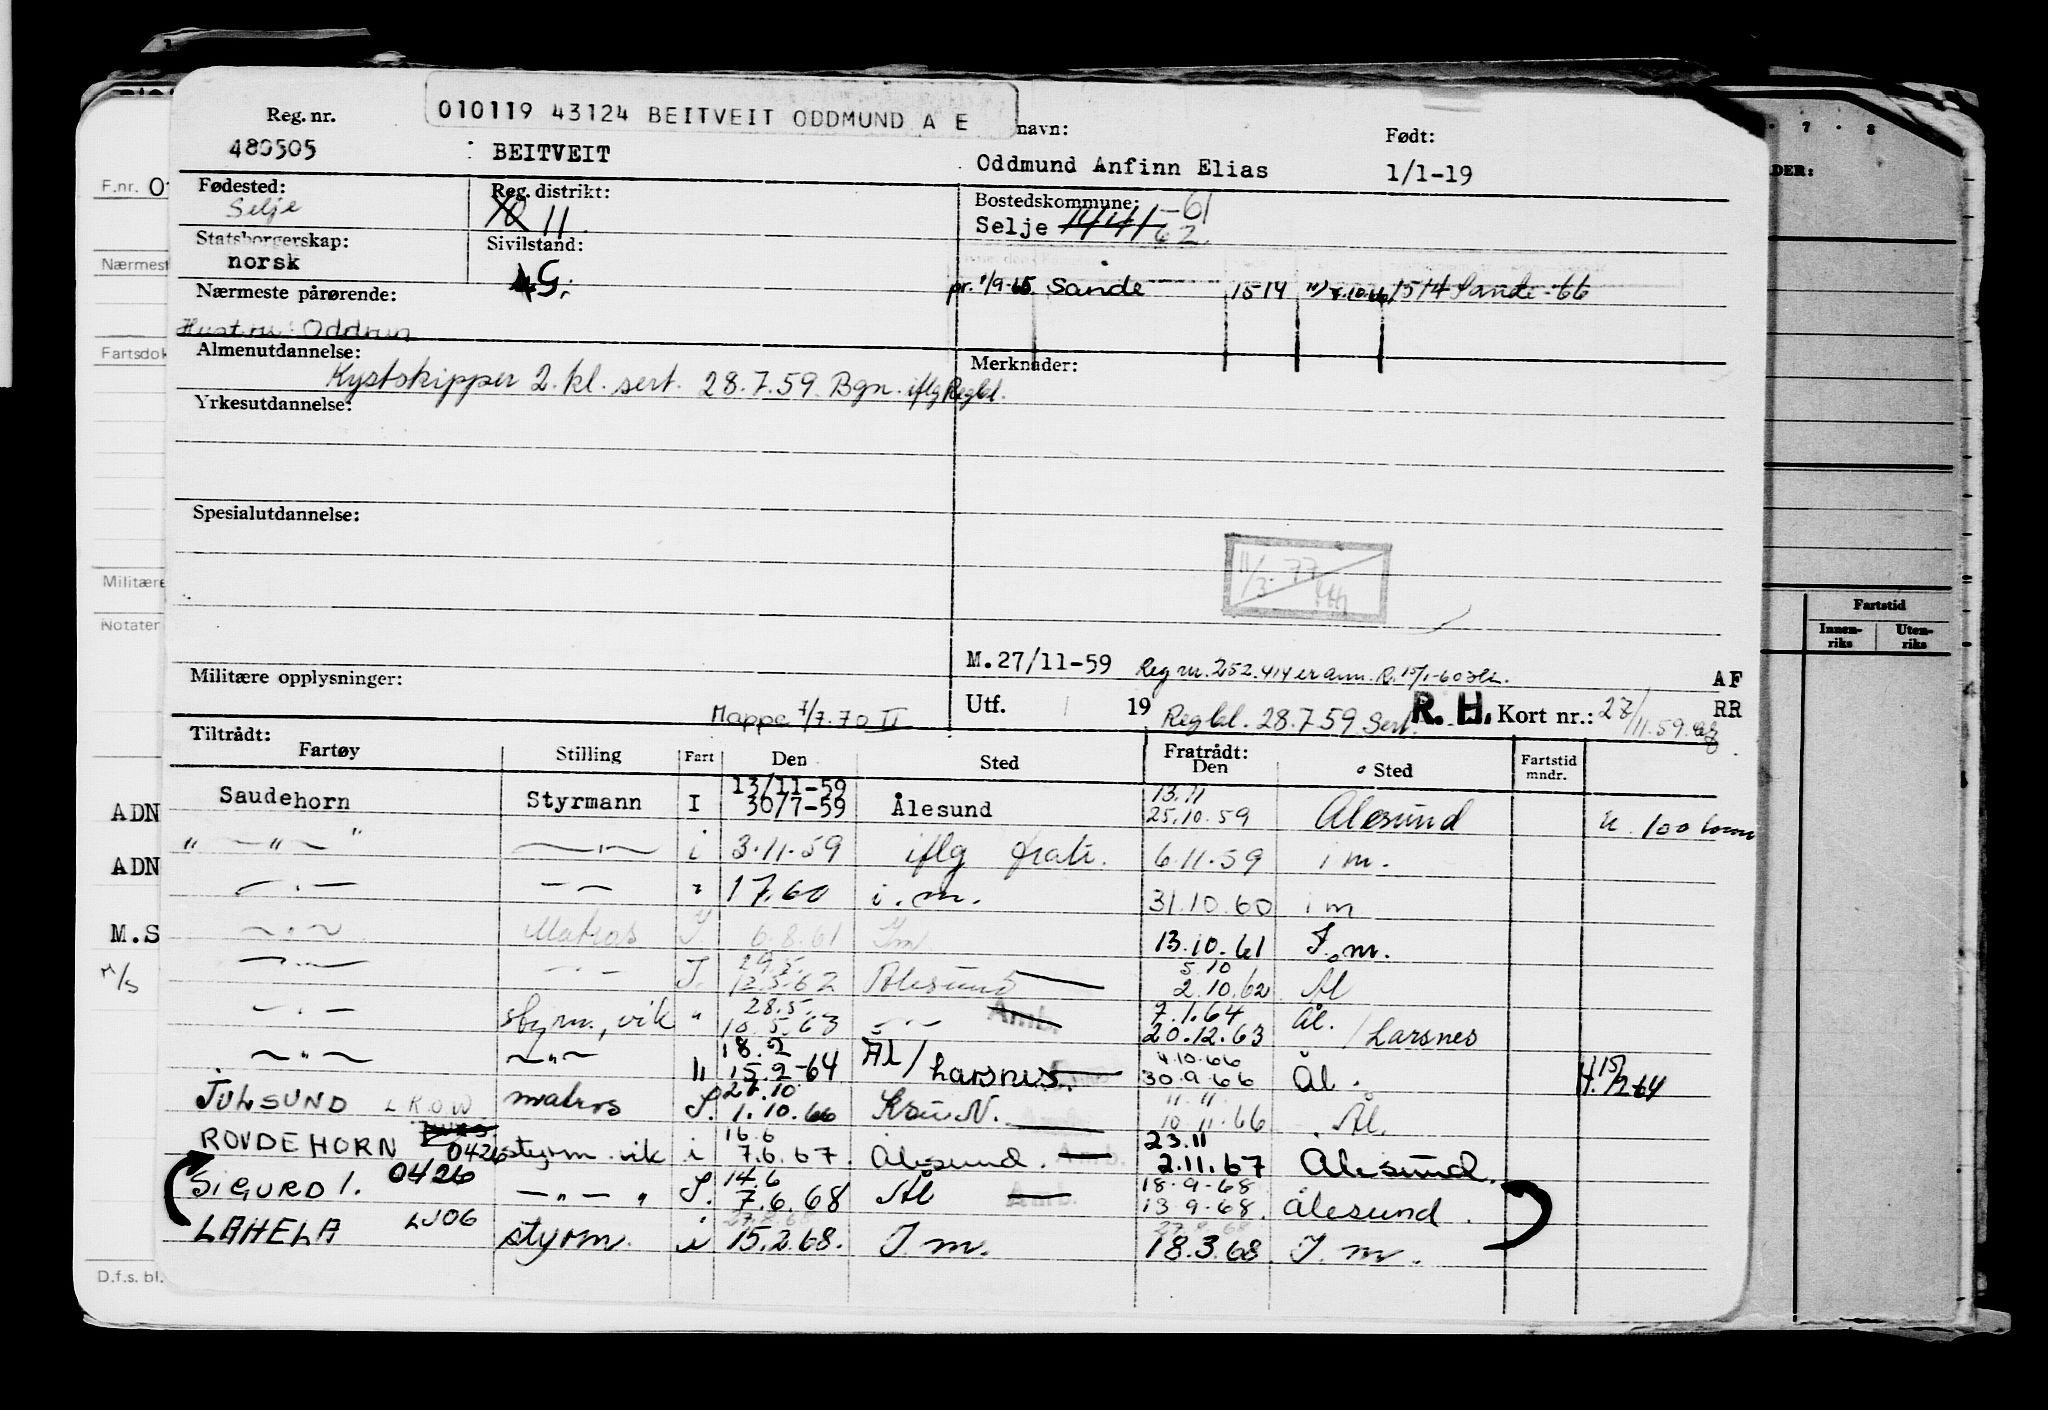 010119 43124 BEITVEIT ODDMUND A E
Reg. nr. navn: Født:
480505 : BEITVEIT Oddmund Anfinn Elias 1/1-19
F.nr. 01
Fødested: Reg. distrikt: Bostedskommune: -61
Selje 11 Selje 62.
Statsborgerskap: Sivilstand:
norsk G.
Nærmest
Nærmeste pårørende: pr. 1/9-65 Sande 1514 1514 Sande -66
Hustru: Oddrun
Fartsdok
Almenutdannelse: Merknader:
Kystskipper 2. kl. sert. 28.7.59 Bgn. iflg Regbl.
Yrkesutdannelse:
Spesialutdannelse:
11/3. 77
Militære
Notater
M.27/11-59 Reg nr. 252.414 er ann. R. 15/1-60
Militære opplysninger: AF
Utf. 19 R. H. Kort nr.: 27/11.59. RR
Mappe 1/7.70 II Regbl. 28.7.59 Sert.
Tiltrådt: Fratrådt:
Fartøy Stilling Fart Den Sted Den Sted Fartstid mndr.
13/11-59 13.11
Saudehorn Styrmann I 30/7-59 Ålesund 25.10.59 Ålesund u. 100 tonn
" — " — " — " — i 3.11.59 iflg fratr. 6.11.59 i m.
— . — — — " 1.7.60 i. m. 31.10.60 i m
— . — Matros I. 6.8.61 I m. 13.10.61 I. m.
29.5. 5.10
— . — — . — I. 12.5.62 Ålesund 2.10.62 Ål
28.5. 7.1.64
— . — styrm., vik " 10.5.63 — " — Amb. 20.12.63 Ål. / Larsnes
18.2 4.10.66
— " — — " — " 15.2-64 Ål / Larsnes. 30.9.66 Ål. 15/2-64
27.10 11.11
JULSUND LKOW matros I. 1.10.66 Kr.su N. 10.11.66 Ål.
16.6 23.11
ROVDEHORN 0426 styrm. vik i 7.6.67. Ålesund. Amb. 2.11.67 Ålesund.
14.6 18.9.68
SIGURD I. 0426 — " — " I. 7.6.68 Ål Amb. 13.9.68. Ålesund.
LAHELA LJOG styrm. i 15.2.68. I m. 18.3.68 I. m.
ADN
ADN
M.S
M/S
D.f.s. bl.
7 . 8
DER:
Fartstid
Innen-riks Uten-riks